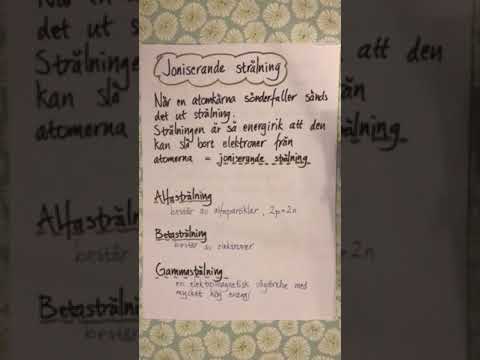 Joniserande strålning
När en atomkärna sönderfaller sänds
det ut strålning.
Strålningen är så energirik att den
kan slå bort elektroner från
atomerna = joniserande strålning
Alfastrålning
består av alfapartiklar, 2p+2n
Betastrålning
består av elektroner
Gammastrålning
en elektromagnetisk vågrörelse med
mycket hög energi